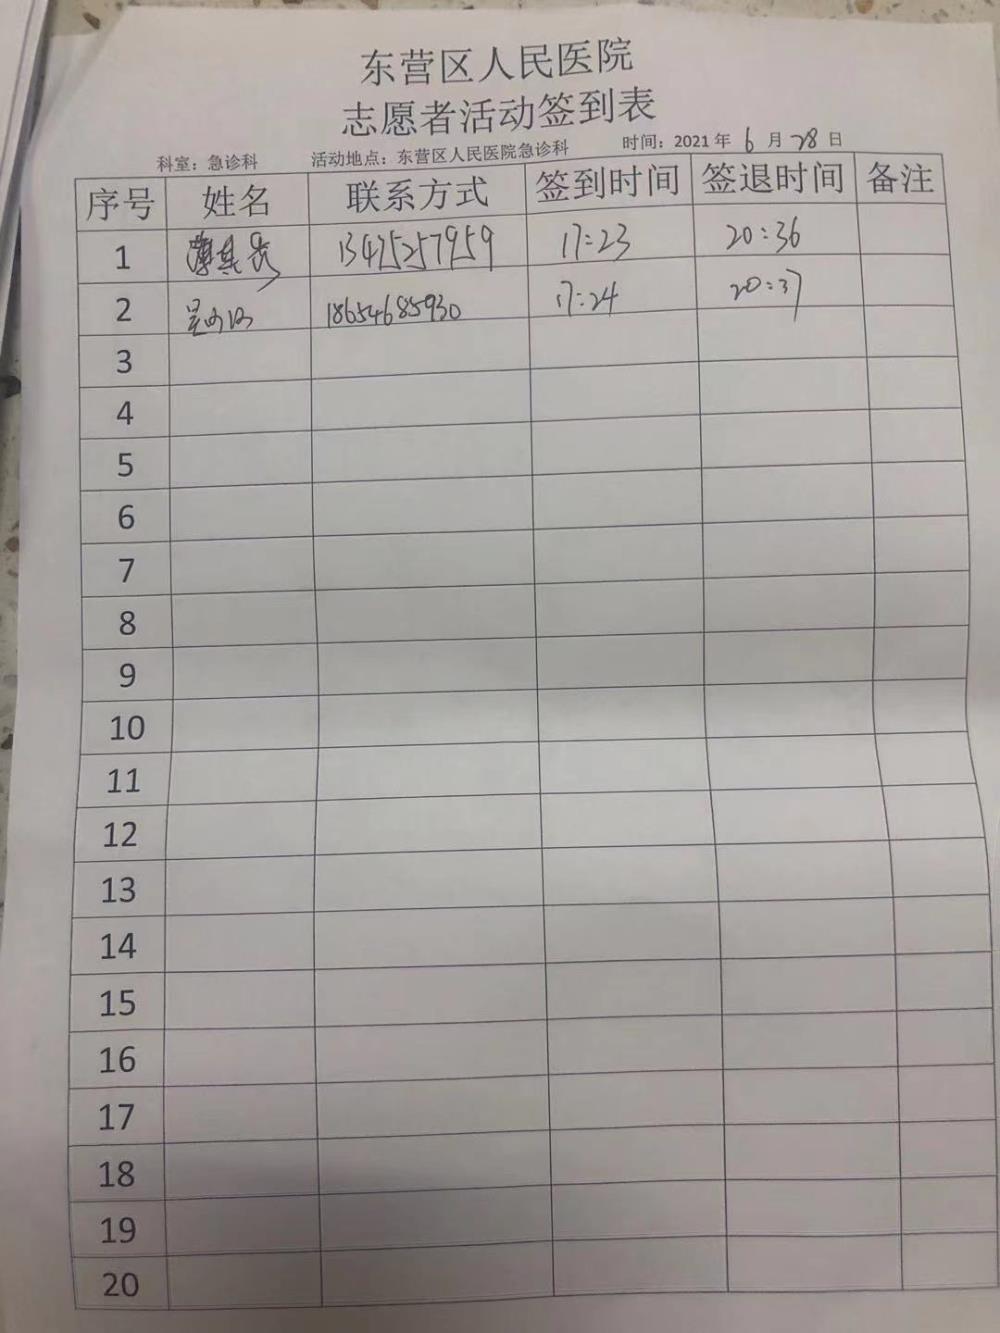 东营区人民医院
志愿者活动签到表
科室：急诊科 活动地点：东营区人民医院急诊科 时间：2021 年 6 月 28 日
序号 姓名 联系方式 签到时间 签退时间 备注
1 13475257959 17:23 20:36
2 18654685930 17:24 20:37
3
4
5
6
7
8
9
10
11
12
13
14
15
16
17
18
19
20